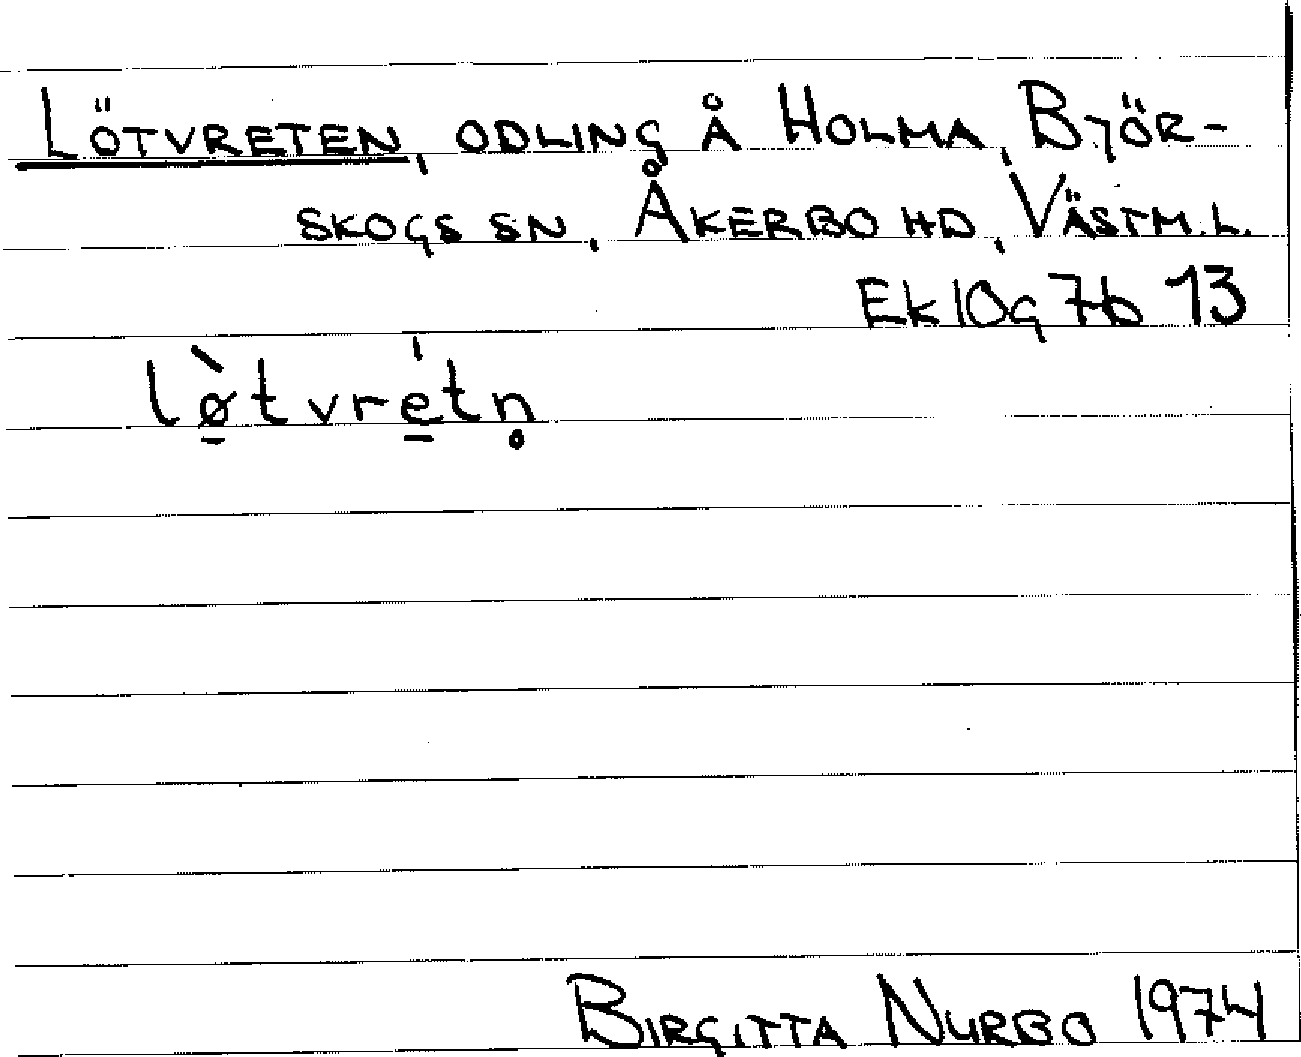 LÖTVRETEN, ODLING Å HOLMA, BJÖR-
SKOGS SN, ÅKERBO HD, VÄSTM.L.
Ek 10g 7b 13
lø̠̀tvre̠̍tn̥
BIRGITTA NURBO 1974